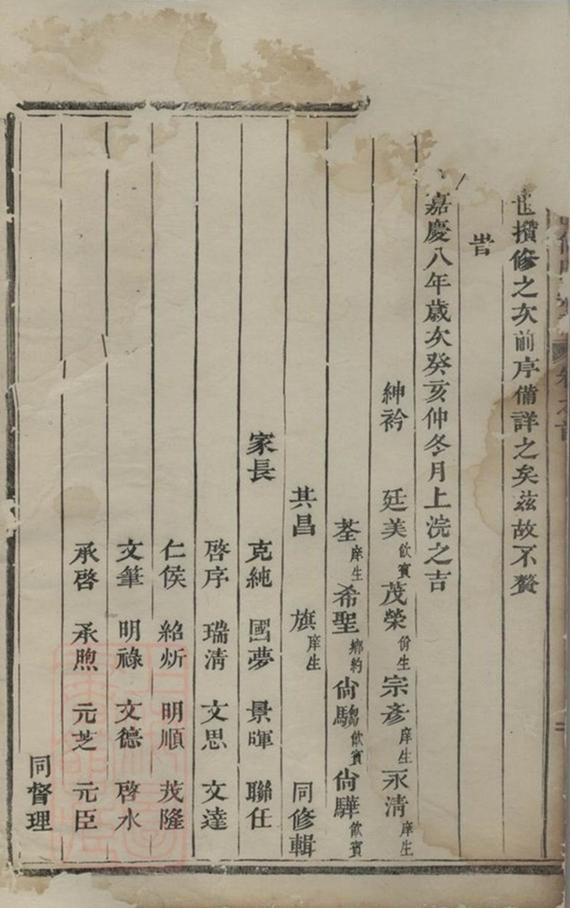 也攢修之次前序備詳之矣茲故不贅
旹
嘉慶八年歲次癸亥仲冬月上浣之吉
紳衿 廷美飲賓 茂榮佾生 宗彥庠生 永清庠生
荃庠生 希聖鄉約 尙騶飲賓 尙驊飲賓
其昌 旗庠生 同修輯
家長 克純 國夢 景暉 聯任
啓序 瑞清 文思 文達
仁侯 紹炘 明順 茂隆
文筆 明祿 文德 啓水
承啓 承煦 元芝 元臣
同督理